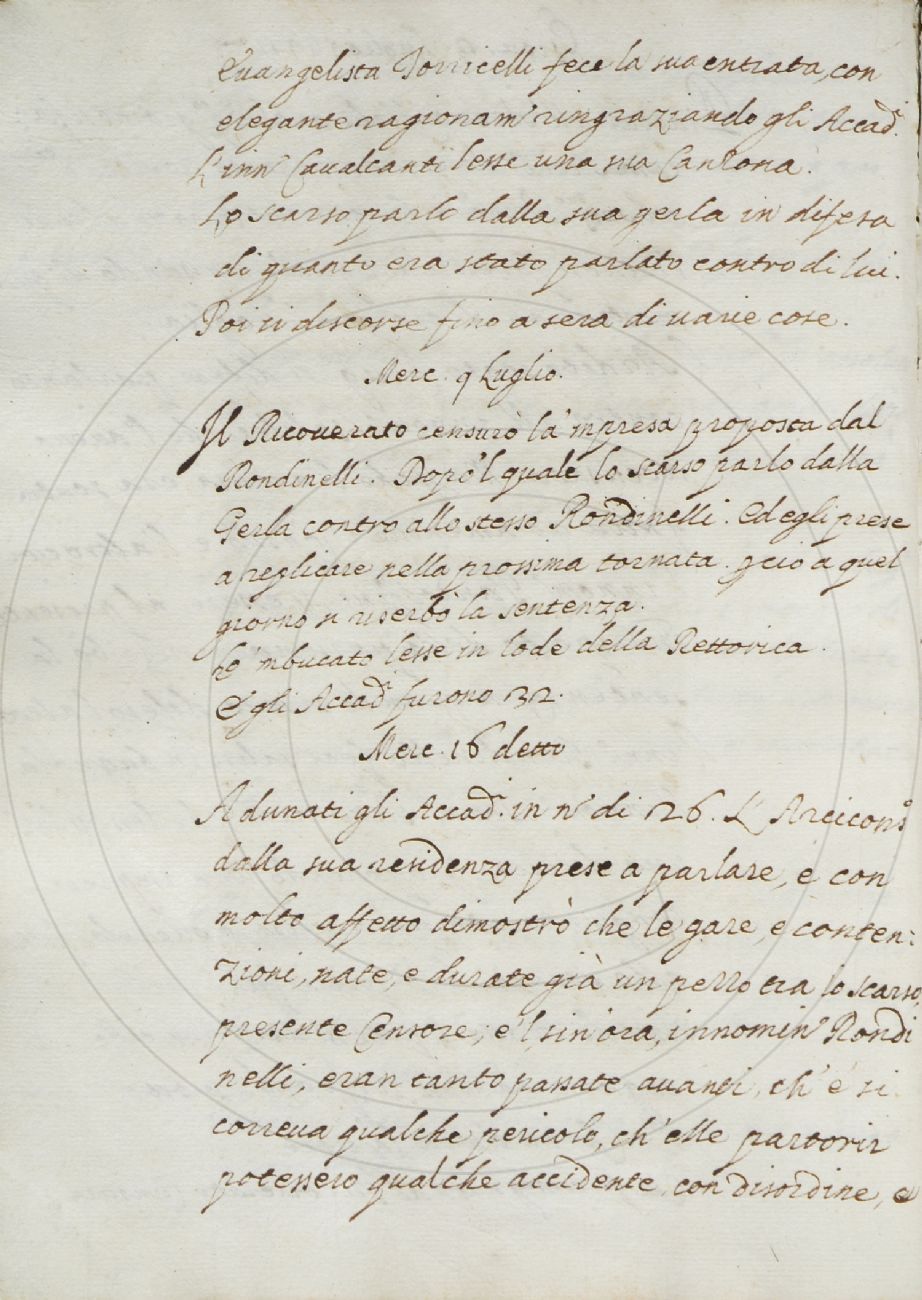 Evangelista Torricelli fece la sua entrata, con
elegante ragionam.to ringraziando gli Accad.ci
L'inn.to Cavalcanti lesse una sua Canzona.
Lo scarso parlò dalla sua gerla in difesa
di quanto era stato parlato contro di lui.
Poi si discorse fino a sera di varie cose.
Merc. 9 Luglio.
Il Ricoverato censurò la 'mpresa proposta dal
Rondinelli. Dopo 'l quale lo scarso parlò dalla
Gerla contro allo stesso Rondinelli. Ed egli prese
a replicare nella prossima tornata. p ciò a quel
giorno si riserbò la sentenza.
Lo 'mbucato lesse in lode della Rettorica.
E gli Accad.ci furono 32.
Merc. 16 detto
Adunati gli Accad.ci in n.o di 26. L'Arcicons.o
dalla sua residenza prese a parlare, e con
molto affetto dimostrò che le gare, e conten:
zioni, nate, e durate già un pezzo tra lo scarso,
presente Censore, e 'l, sin' ora, innomin.to Rondi
nelli, eran tanto passate avanti, ch' e' si
correva qualche pericolo, ch' elle partorir
potessero qualche accidente, con disordine, e